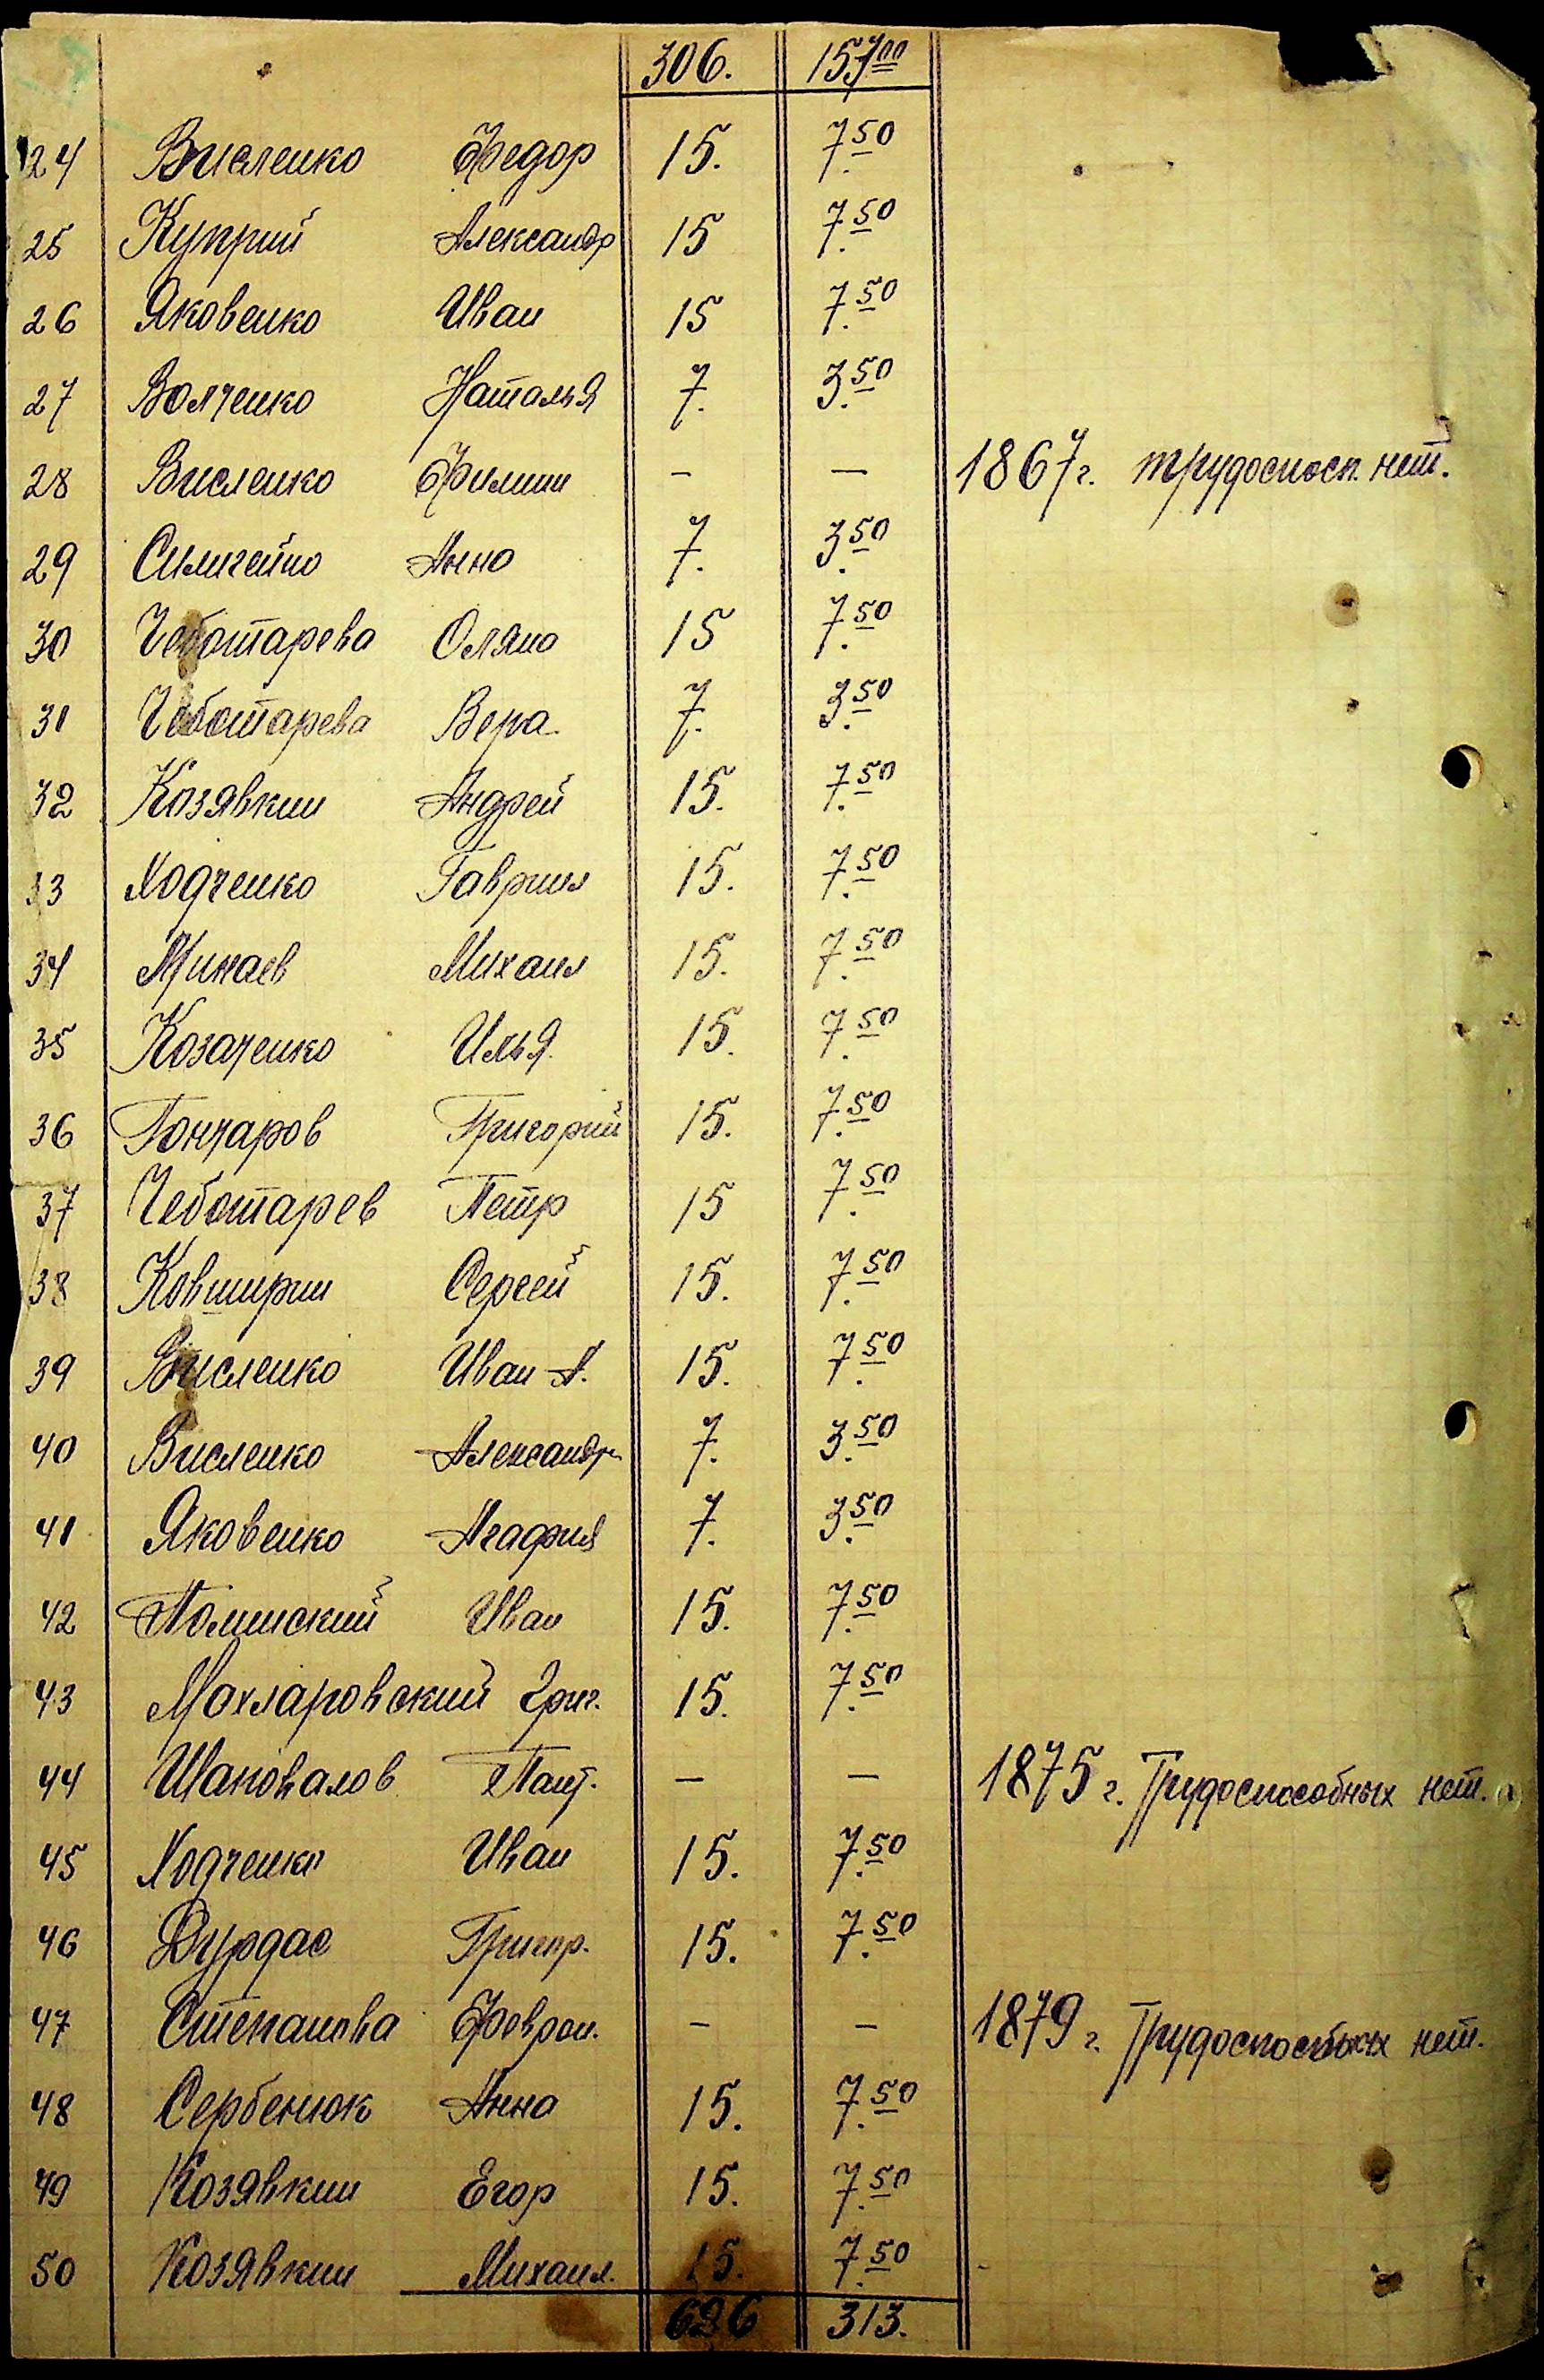 306. 157 00
24 Висленко Федор 15. 7.50
25 Куприй Александр 15 7.50
26 Яковенко Иван 15 7.50
27 Волченко Наталья 7. 3.50
28 Висленко Филипп - - 1867 г. трудоспосп. нет.
29 Анно 7. 3.50
30 Чеботарева Оляно 15 7.50
31 Чеботарева Вера 7. 3.50
32 Козявкин Андрей 15. 7.50
33 Ходченко Гавриил 15. 7.50
34 Минаев Михаил 15. 7.50
35 Козаченко Илья 15. 7.50
36 Гончаров Григорий 15. 7.50
37 Чеботарев Петр 15 7.50
38 Ковширин Сергей 15. 7.50
39 Висленко Иван А. 15. 7.50
40 Висленко Александр 7. 3.50
41 Яковенко Агафия 7. 3.50
42 Иван 15. 7.50
43 Махларовский Григ. 15. 7.50
44 Шаповалов Пант. - - 1875 г. Трудоспособных нет.
45 Ходченко Иван 15. 7.50
46 Дурдас Григор. 15. 7.50
47 Степанова Феврон. - - 1879 г. нет.
48 Сербенюк Анно 15. 7.50
49 Козявкин Егор 15. 7.50
50 Козявкин Михаил. 15. 7.50
626 313.